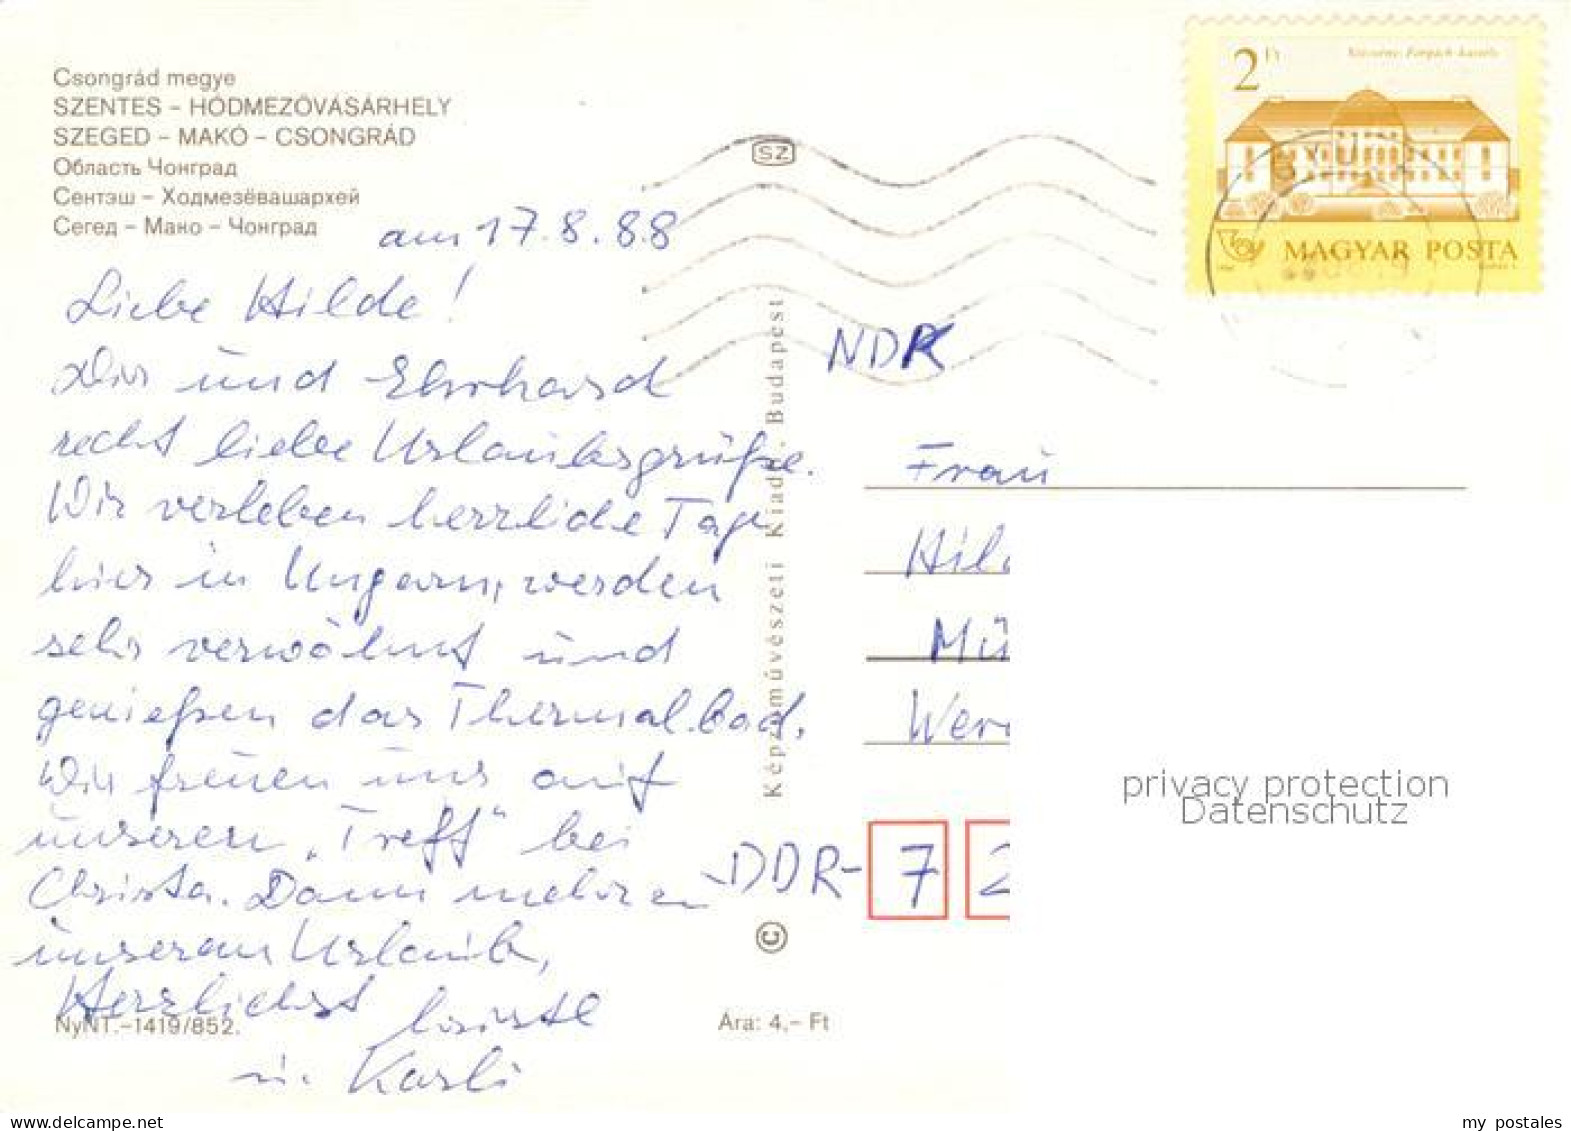 Csongrád megye
SZENTES – HÓDMEZŐVÁSÁRHELY
SZEGED – MAKÓ – CSONGRÁD
Область Чонград
Сентэш – Ходмезёвашархей
Сегед – Мако – Чонград
am 17.8.88
Liebe Hilde!
Dir und Ehrhard
recht liebe Urlaubsgrüße.
Wir verleben herrliche Tage
hier in Ungarn, werden
sehr verwöhnt und
genießen das Thermalbad.
Wir freuen uns auf
unseren „Treff“ bei
Christa. Dann mehr von
unseram Urlaub,
Herzlichst
u. Karli
NyNT.–1419/852.
Ára: 4,– Ft
SZ
Képzőművészeti Kiadó, Budapest
©
2 Ft
MAGYAR POSTA
NDK
Frau
Hil
Mü
Wer
DDR- 7 2
privacy protection
Datenschutz
my postales
delcampe.net / mcpost